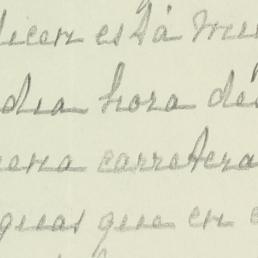 dicen está muy
dia hora de
ena carretera
guas que en e